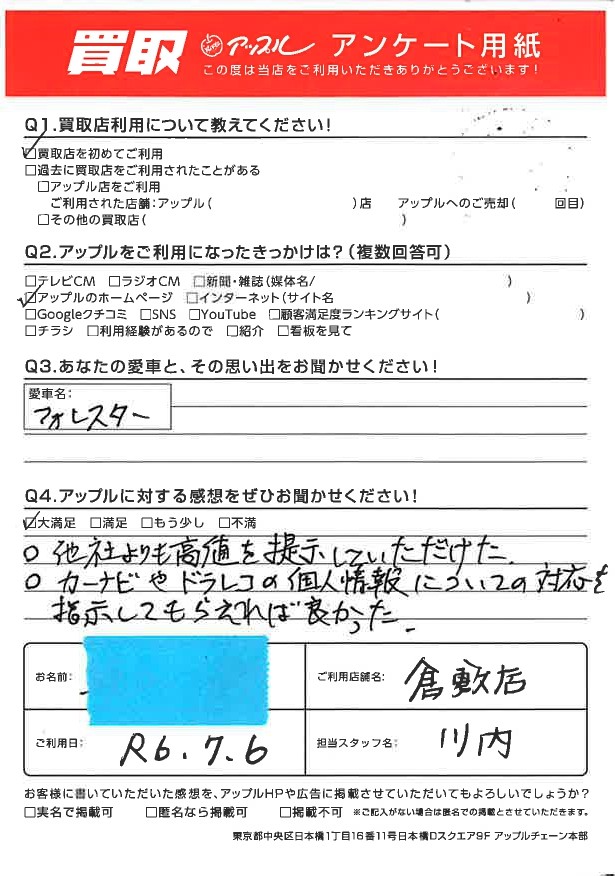 買取 アップル アンケート用紙
この度は当店をご利用いただきありがとうございます！
Q1.買取店利用について教えてください！
☑買取店を初めてご利用
□過去に買取店をご利用されたことがある
□アップル店をご利用
ご利用された店舗：アップル（　　　）店　アップルへのご売却（　　　回目）
□その他の買取店（　　　）
Q2.アップルをご利用になったきっかけは？（複数回答可）
□テレビCM　□ラジオCM　□新聞・雑誌（媒体名/　　　）
☑アップルのホームページ　□インターネット（サイト名　　　）
□Googleクチコミ　□SNS　□YouTube　□顧客満足度ランキングサイト（　　　）
□チラシ　□利用経験があるので　□紹介　□看板を見て
Q3.あなたの愛車と、その思い出をお聞かせください！
愛車名：
フォレスター
Q4.アップルに対する感想をぜひお聞かせください！
☑大満足　□満足　□もう少し　□不満
○ 他社よりも高値を提示していただけた.
○ カーナビやドラレコの個人情報についての対応を
指示してもらえれば良かった.
お名前：
ご利用店舗名： 倉敷店
ご利用日： R6.7.6
担当スタッフ名： 川内
お客様に書いていただいた感想を、アップルHPや広告に掲載させていただいてもよろしいでしょうか？
□実名で掲載可　□匿名なら掲載可　□掲載不可　※ご記入がない場合は匿名での掲載とさせていただきます。
東京都中央区日本橋1丁目16番11号日本橋Dスクエア9F アップルチェーン本部